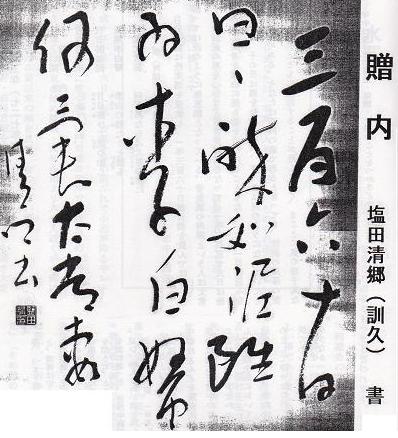 贈内 塩田清郷(訓久) 書
三百六十日
日〻酔如泥雖
為李白婦
何異太常妻
清郷書